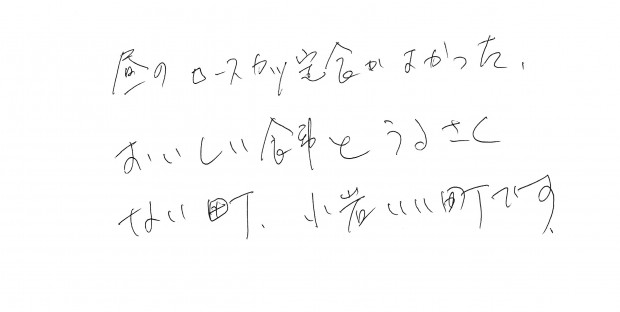 昼のロースカツ定食がよかった、
おいしい食事とうるさく
ない町、小岩いい町です。